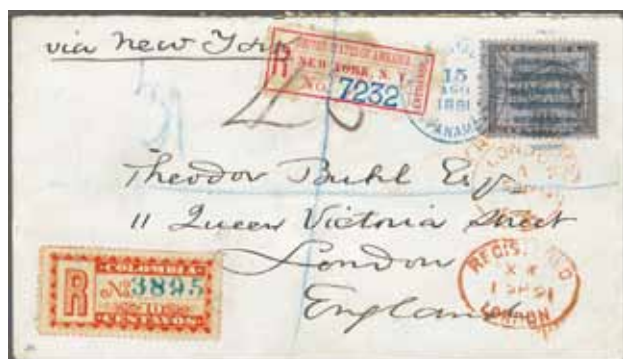 via New York
R
UNITED STATES OF AMERICA
NEW YORK, N. Y.
NO. 7232
15
AGO
1891
PANAMA
LONDON
Theodor Buhl Esq
11 Queen Victoria Street
London
England
COLOMBIA
R
No. 3895
CENTAVOS
REGISTERED
X
1 SP 91
LONDON